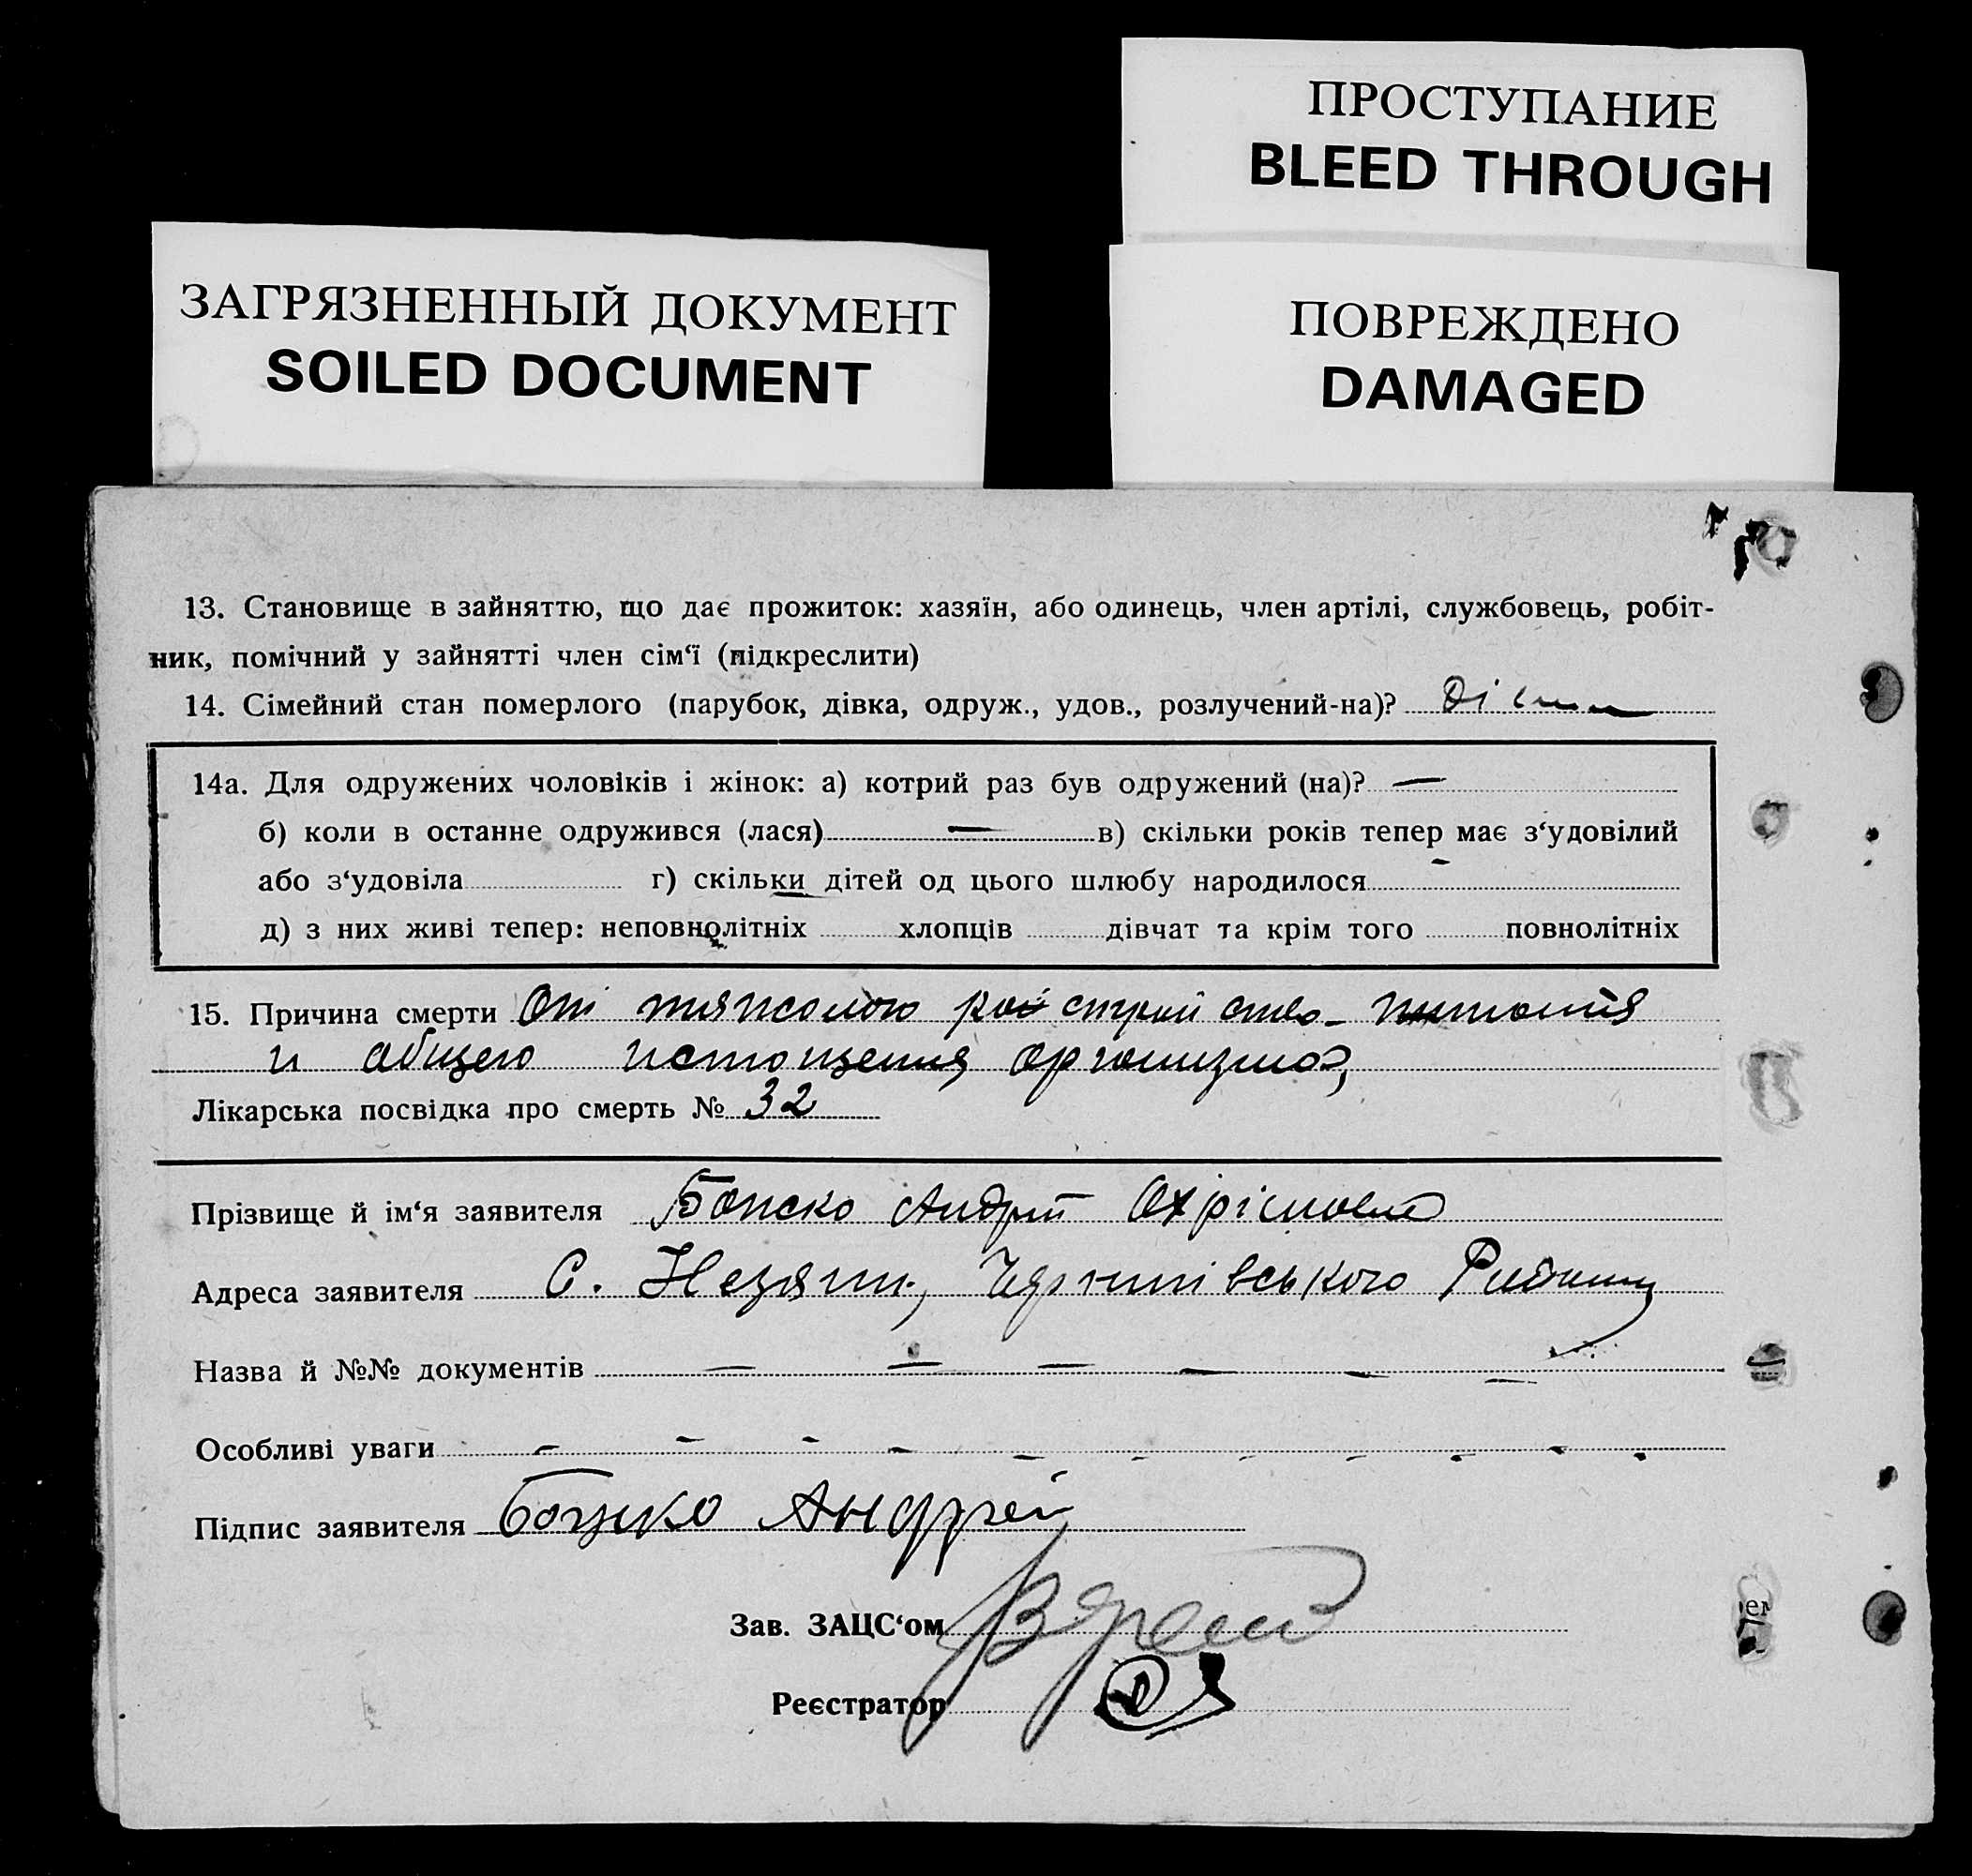 ПРОСТУПАНИЕ
BLEED THROUGH
ЗАГРЯЗНЕННЫЙ ДОКУМЕНТ
SOILED DOCUMENT
ПОВРЕЖДЕНО
DAMAGED
13. Становище в зайняттю, що дає прожиток: хазяїн, або одинець, член артілі, службовець, робіт-
ник, помічний у зайнятті член сім‘ї (підкреслити)
14. Сімейний стан померлого (парубок, дівка, одруж., удов., розлучений-на)?
14а. Для одружених чоловіків і жінок: а) котрий раз був одружений (на)? —
б) коли в останне одружився (лася) — в) скільки років тепер має з‘удовілий
або з‘удовіла г) скільки дітей од цього шлюбу народилося —
д) з них живі тепер: неповнолітніх хлопців дівчат та крім того повнолітніх
15. Причина смерти От тяжолого питания
и общего истощения организма,
Лікарська посвідка про смерть № 32
Прізвище й ім‘я заявителя Андрій
Адреса заявителя С. Чернигівського
Назва й №№ документів — — — — — —
Особливі уваги - - - - - - - - - -
Підпис заявителя Андрей
Зав. ЗАЦС‘ом
Реєстратор